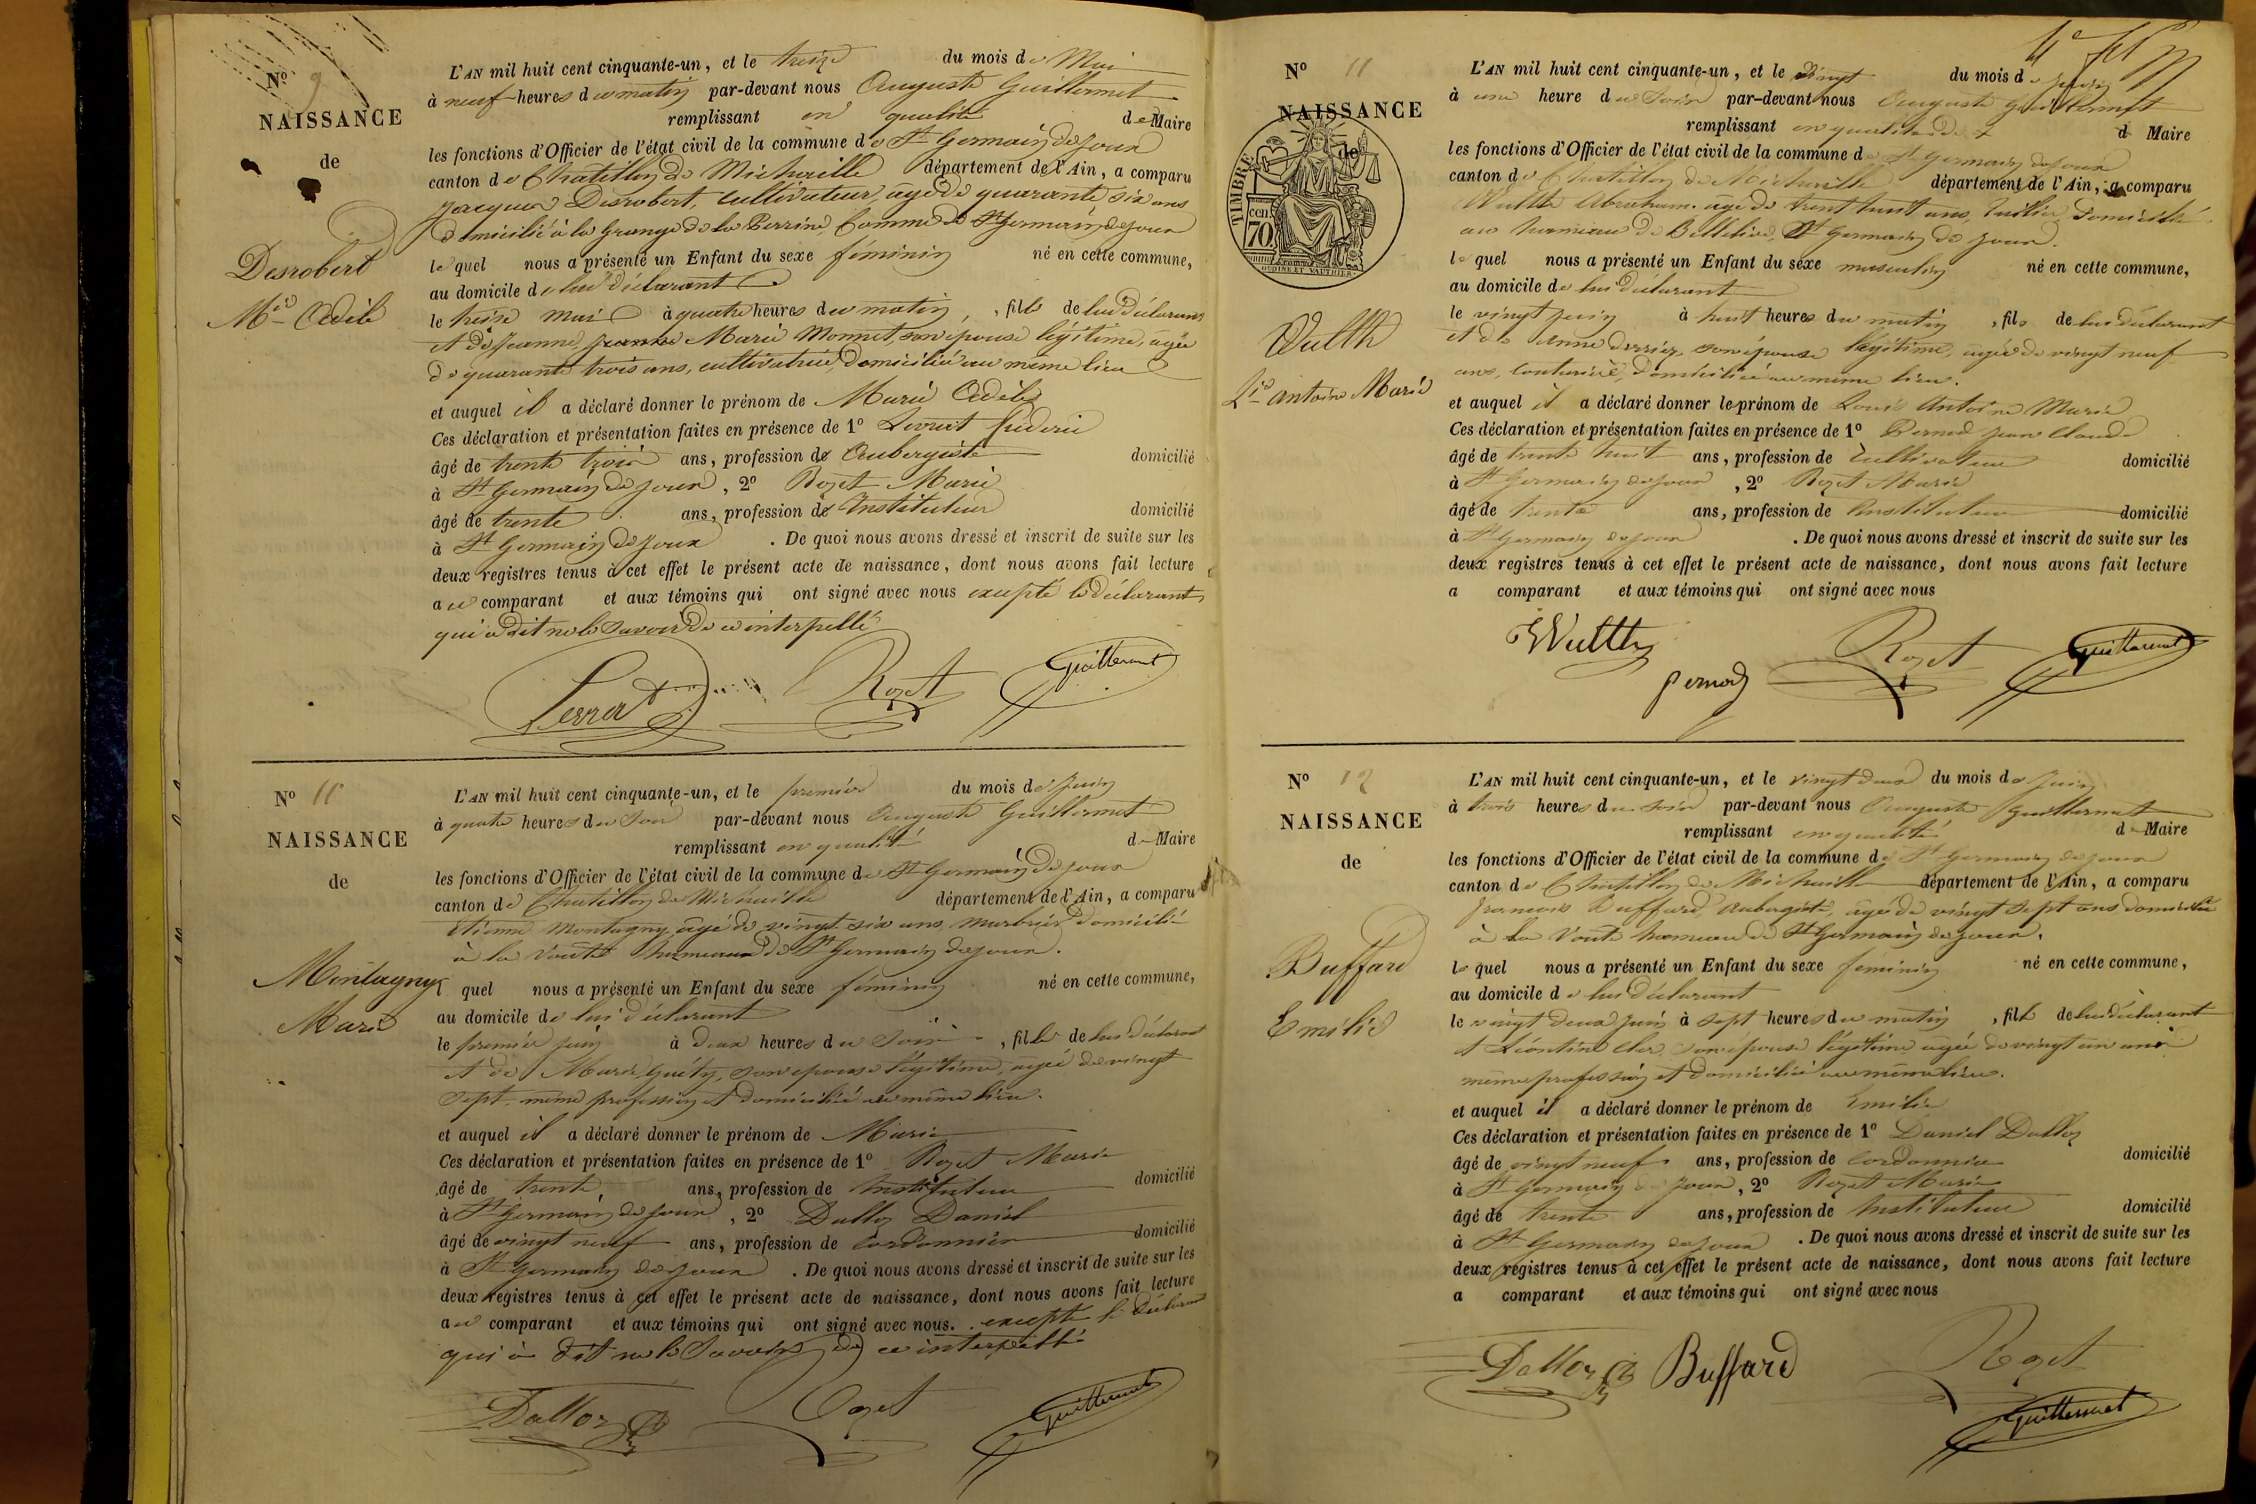 N° 9
NAISSANCE
de
Desrobert
Mie Adèle
L'AN mil huit cent cinquante-un, et le treize du mois de Mai
à neuf heures du matin par-devant nous Auguste Guillermet
remplissant en qualité de Maire
les fonctions d'Officier de l'état civil de la commune de St Germain de Joux
canton de Chatillon de Michaille département de l'Ain, a comparu
Jacques Desrobert, cultivateur, agé de quarante six ans
domicilié à la Grange de la Perrine, Commune de St Germain de Joux
lequel nous a présenté un Enfant du sexe féminin né en cette commune,
au domicile de lui déclarant
le treize mai à quatre heures du matin, fille de lui déclarant
et de Jeanne Marie Monnet, son épouse légitime, agée
de quarante trois ans, cultivatrice, domiciliée au même lieu
et auquel il a déclaré donner le prénom de Marie Adèle
Ces déclaration et présentation faites en présence de 1°
âgé de trente trois ans, profession de Aubergiste domicilié
à St Germain de Joux, 2° Rozet Marie
âgé de trente ans, profession de Instituteur domicilié
à St Germain de Joux. De quoi nous avons dressé et inscrit de suite sur les
deux registres tenus à cet effet le présent acte de naissance, dont nous avons fait lecture
au comparant et aux témoins qui ont signé avec nous excepté le déclarant
qui a dit ne le savoir de ce interpellé
Rozet Guillermet
N° 10
NAISSANCE
de
Montagny
Marie
L'AN mil huit cent cinquante-un, et le premier du mois de Juin
à quatre heures du Soir par-devant nous Auguste Guillermet
remplissant en qualité de Maire
les fonctions d'Officier de l'état civil de la commune de St Germain de Joux
canton de Chatillon de Michaille département de l'Ain, a comparu
Etienne Montagny, agé de vingt six ans, marbrier domicilié
à la Voute hameau de St Germain de Joux.
quel nous a présenté un Enfant du sexe féminin né en cette commune,
au domicile de lui déclarant
le premier juin à deux heures du Soir, fille de lui déclarant
et de Marie Guéty, son épouse légitime, agée de vingt
sept, même profession et domiciliée au même lieu.
et auquel il a déclaré donner le prénom de Marie
Ces déclaration et présentation faites en présence de 1° Rozet Marie
âgé de trente ans, profession de Instituteur domicilié
à St Germain de Joux, 2° Dalloz Daniel
âgé de vingt neuf ans, profession de Cordonnier domicilié
à St Germain de Joux. De quoi nous avons dressé et inscrit de suite sur les
deux registres tenus à cet effet le présent acte de naissance, dont nous avons fait lecture
au comparant et aux témoins qui ont signé avec nous. excepté le déclarant
qui a dit ne le Savoir de ce interpellé
Dalloz D Rozet Guillermet
N° 11
NAISSANCE
de
TIMBRE
70 cen.
Wultth
Ls Antoine Marie
L'AN mil huit cent cinquante-un, et le vingt du mois de juin
à une heure du Soir par-devant nous Auguste Guillermet
remplissant en qualité de Maire
les fonctions d'Officier de l'état civil de la commune de St Germain de Joux
canton de Chatillon de Michaille département de l'Ain, a comparu
Wultth Abraham agé de trent huit ans, domicilié
au hameau de St Germain de Joux.
lequel nous a présenté un Enfant du sexe masculin né en cette commune,
au domicile de lui déclarant
le vingt juin à huit heures du matin, fils de lui déclarant
et de Anne son épouse légitime, agée de vingt neuf
ans, couturière, domiciliée au même lieu.
et auquel il a déclaré donner le prénom de Louis Antoine Marie
Ces déclaration et présentation faites en présence de 1° Pernod Jean Claude
âgé de trente huit ans, profession de Cultivateur domicilié
à St Germain de Joux, 2° Rozet Marie
âgé de trente ans, profession de Instituteur domicilié
à St Germain de Joux. De quoi nous avons dressé et inscrit de suite sur les
deux registres tenus à cet effet le présent acte de naissance, dont nous avons fait lecture
a comparant et aux témoins qui ont signé avec nous
Wultth pernod Rozet Guillermet
N° 12
NAISSANCE
de
Buffard
Emélie
L'AN mil huit cent cinquante-un, et le vingt deux du mois de Juin
à trois heures du soir par-devant nous Auguste Guillermet
remplissant en qualité de Maire
les fonctions d'Officier de l'état civil de la commune de St Germain de Joux
canton de Chatillon de Michaille département de l'Ain, a comparu
françois Buffard, Aubergiste, agé de vingt sept ans domicilié
à la Voute hameau de St Germain de Joux.
lequel nous a présenté un Enfant du sexe féminin né en cette commune,
au domicile de lui déclarant
le vingt deux juin à sept heures du matin, fille de lui déclarant
et Léontine son épouse légitime agée de vingt un ans
même profession et domiciliée au même lieu.
et auquel il a déclaré donner le prénom de Emélie
Ces déclaration et présentation faites en présence de 1° Daniel Dalloz
âgé de vingt neuf ans, profession de Cordonnier domicilié
à St Germain de Joux, 2° Rozet Marie
âgé de trente ans, profession de Instituteur domicilié
à St Germain de Joux. De quoi nous avons dressé et inscrit de suite sur les
deux registres tenus à cet effet le présent acte de naissance, dont nous avons fait lecture
a comparant et aux témoins qui ont signé avec nous
Dalloz D Buffard Rozet
Guillermet